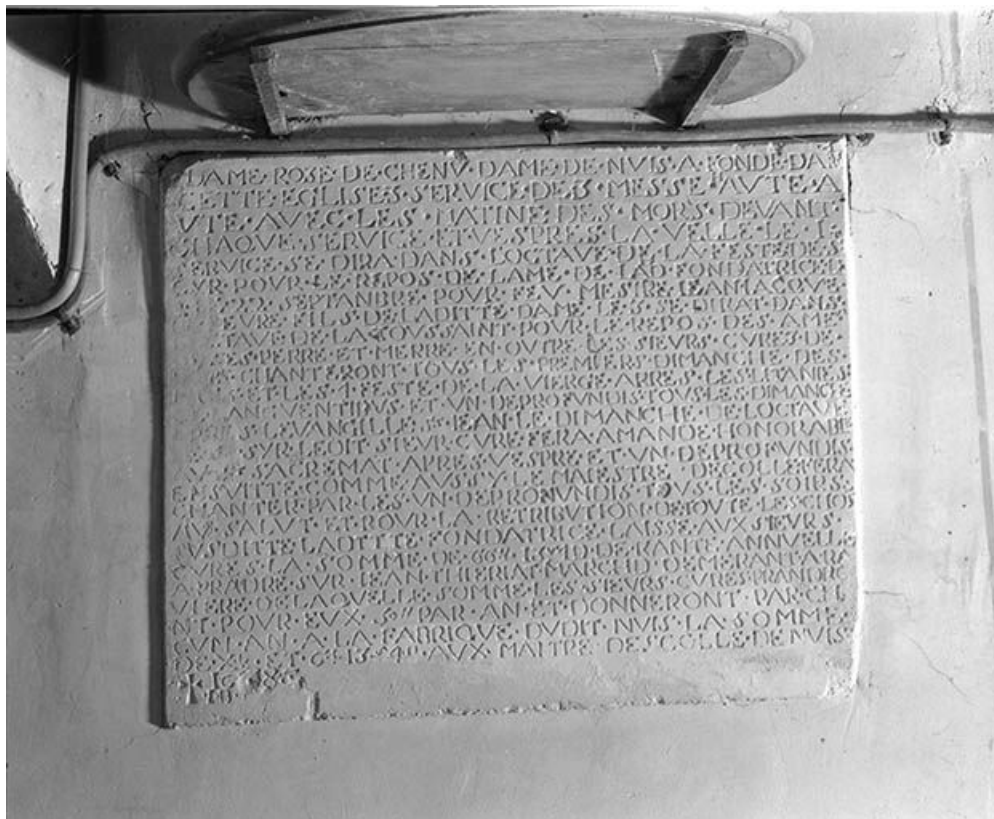 DAME·ROSE·DE·CHENV·DAME·DE·NVIS·A·FONDE·DA
CETTE·EGLISE·S·SERVICE·DE·3·MESSE·AVTE·A
VTE·AVEC·LES·MATINE·DES·MORS·DEVANT·
CHAQVE·SERVICE·ET·VESPRES·LA·VELLE·LE·I
SERVICE·SE·DIRA·DANS·LOCTAVE·DE·LA·FESTE·DE·S
POVR·LE·REPOS·DE·LAME·DE·LAD·FONDATRICE
22·SEPTANBRE·POVR·FEV·MESIRE·IEAN·IACQVE
FILS·DE·LADITTE·DAME·LE·S·SE·DIRAT·DANS
TAVE·DE·LA·TOVSSAINT·POVR·LE·REPOS·DES·AME
SES·PERRE·ET·MERRE·EN·OVTRE·LES·SIEVRS·CVRES·DE
CHANTERONT·TOVS·LES·PREMIERS·DIMANCHE·DES
ET·LES·4·FESTE·DE·LA·VIERGE·APRES·LES·LITANIES
ET·VN·DEPROFVNDIS·TOVS·LES·DIMANCHE
LEVANGILLE·St·IEAN·LE·DIMANCHE·DE·LOCTAVE
LEDIT·SIEVR·CVRE·FERA·AMANDE·HONORABLE
APRES·VESPRE·ET·VN·DEPROFVNDIS
ENSVITTE·COMME·AVSSY·LE·MAIESTRE·DECOLLE·FERA
CHANTER·PAR·LES·VN·DEPROFVNDIS·TOVS·LES·SOIRS·
AV·SALVT·ET·POVR·LA·RETRIBVTION·DE·TOVTE·LES·CHOS
SVSDITTE·LADITTE·FONDATRICE·LAISSE·AVX·SIEVRS·
CVRES·LA·SOMME·DE·RANTE·ANNVELLE
A·PRADRE·SVR·IEAN·THERIAT·MARCHD·DEMERANT·A·RA
VIERE·DE·LAQVELLE·SOMME·LES·SIEVRS·CVRES·PRANDRO
NT·POVR·EVX·PAR·AN·ET·DONNERONT·PAR·CH
CVN·AN·A·LA·FABRIQVE·DVDIT·NVIS·LA·SOMME·
ET·AVX·MAITRE·DESCOLLE·DE·NVIS